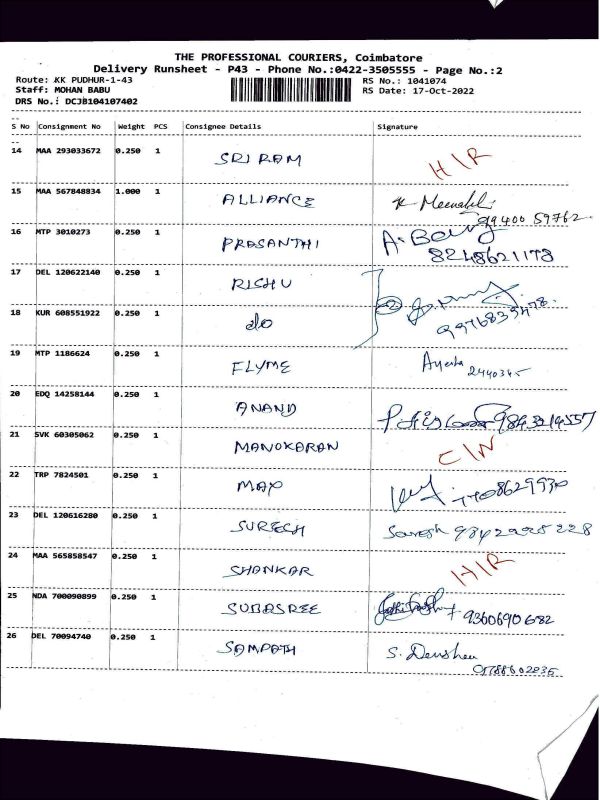 THE PROFESSIONAL COURIERS, Coimbatore
Delivery Runsheet - P43 - Phone No.:0422-3505555 - Page No.:2
Route: KK PUDHUR-1-43 RS No.: 1041074
Staff: MOHAN BABU RS Date: 17-Oct-2022
DRS No.: DCJB104107402
S No Consignment No Weight PCS Consignee Details Signature
14 MAA 293033672 0.250 1 SRI RAM H/R
15 MAA 567848834 1.000 1 ALLIANCE K Meenakshi
99400 59762
16 MTP 3010273 0.250 1 PRASANTHI A.
8248621178
17 DEL 120622140 0.250 1 RISHU
18 KUR 608551922 0.250 1 do 9976839478
19 MTP 1186624 0.250 1 FLYME 2440345
20 EDQ 14258144 0.250 1 ANAND
21 SVK 60305062 0.250 1 MANOKARAN C/N
22 TRP 7824501 0.250 1 MAX 7708629930
23 DEL 120616280 0.250 1 SURESH Suresh
24 MAA 565858547 0.250 1 SHANKAR H/R
25 NDA 700090899 0.250 1 SUBASREE 9360690682
26 DEL 70094740 0.250 1 SAMPATH S.